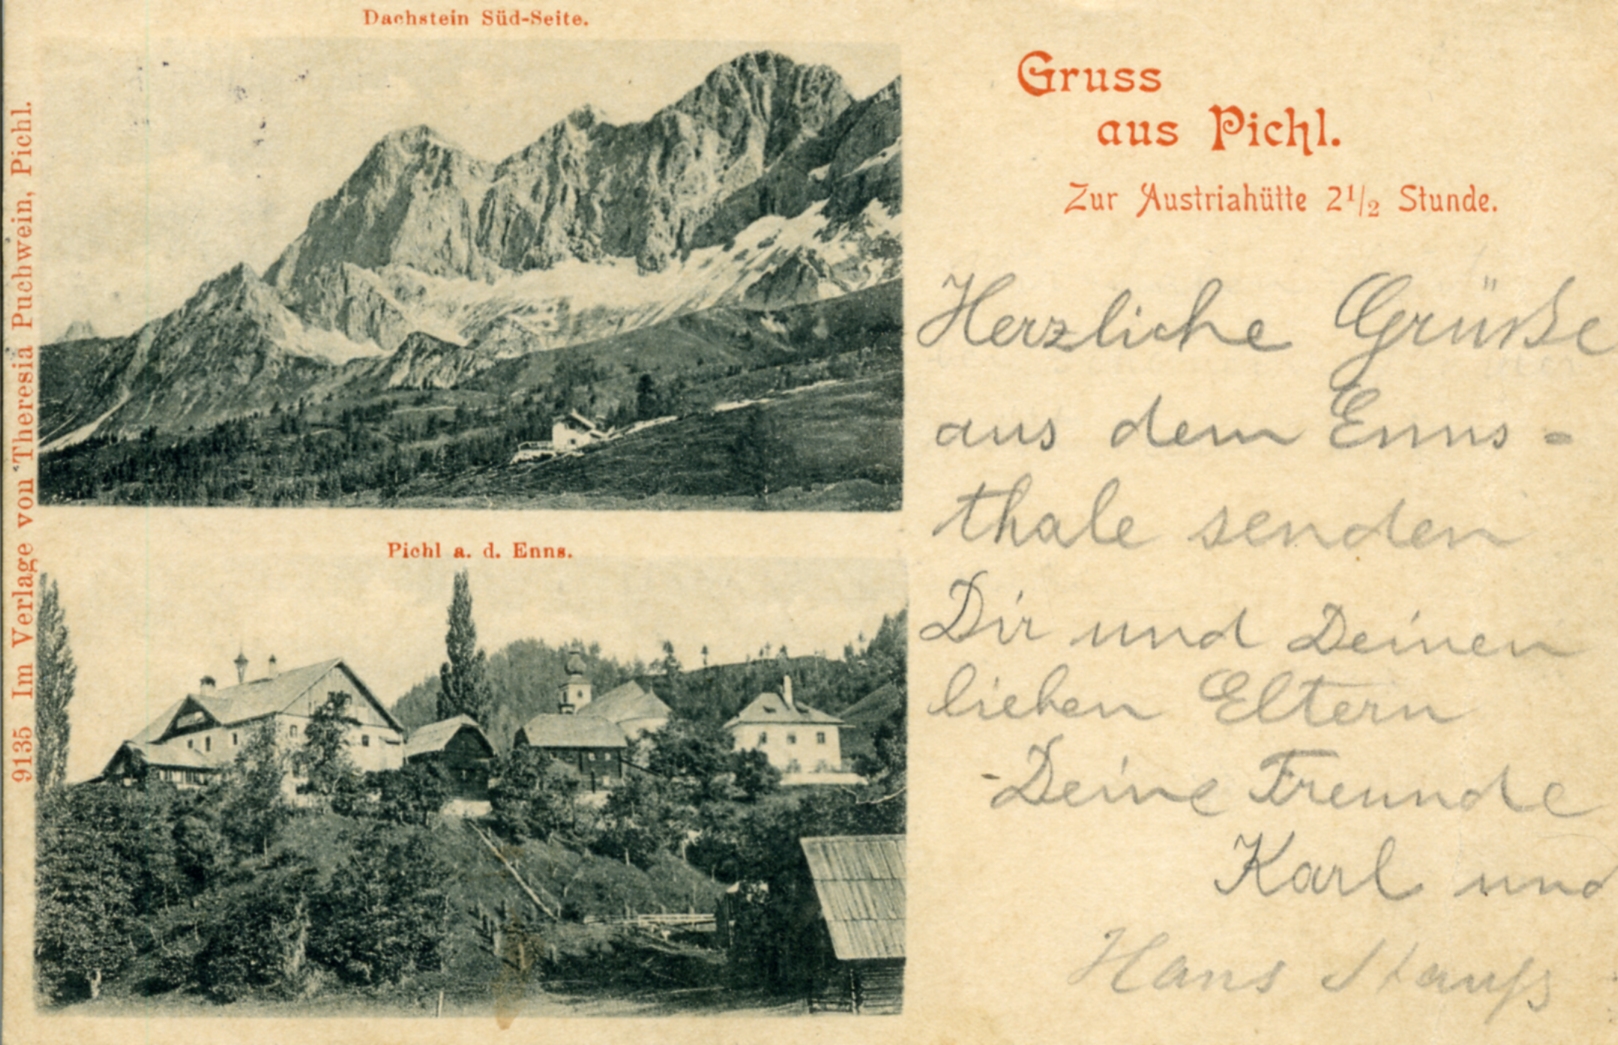 Dachstein Süd-Seite.
9135 Im Verlage von Theresia Puchwein, Pichl.
Pichl a. d. Enns.
Gruss
aus Pichl.
Zur Austriahütte 2½ Stunde.
Herzliche Grüße
aus dem Enns-
thale senden
Dir und Deinen
lieben Eltern
Deine Freunde
Karl und
Hans